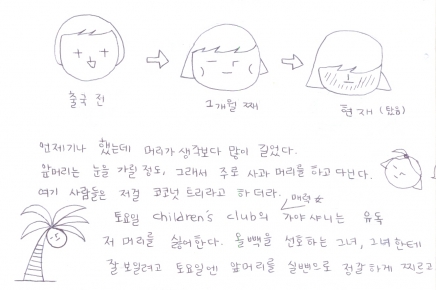 출국 전
1개월 째
현재 (탔음)
언제기나 했는데 머리가 생각보다 많이 길었다.
앞머리는 눈을 가릴 정도, 그래서 주로 사과 머리를 하고 다닌다.
여기 사람들은 저걸 코코넛 트리라고 하더라.
매력☆
토요일 children's club의 가야샤니는 유독
저 머리를 싫어한다. 올빽을 선호하는 그녀, 그녀한테
잘 보일려고 토요일엔 앞머리를 실삔으로 정갈하게 찌르고